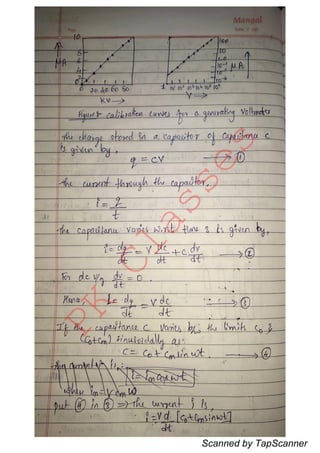 Mangal
Page
Date / /20
10
8
6
4
2
0
μA
0 20 40 60 80
KV →
μA
1 10 10² 10³ 10⁴ 10⁵
V →
Figure: calibration curves for a generating voltmeter
The charge stored in a capacitor of capacitance c
is given by,
q = cv → ①
The current through the capacitor,
i = q/t
The capacitance varies w.r.t time & is given by,
i = dq/dt = V dc/dt + c dv/dt → ②
For dc v/g dv/dt = 0.
Hence i = dq/dt = V dc/dt → ③
If the capacitance C varies b/w the limits C₀ &
(C₀+Cm) sinusoidally as:
C = C₀ + Cm sin ωt. → ④
i = im cos ωt
where im = V Cm ω
put ④ in ③ => The current i is,
i = V d/dt [C₀ + Cm sin ωt]
PK Classes
Scanned by TapScanner